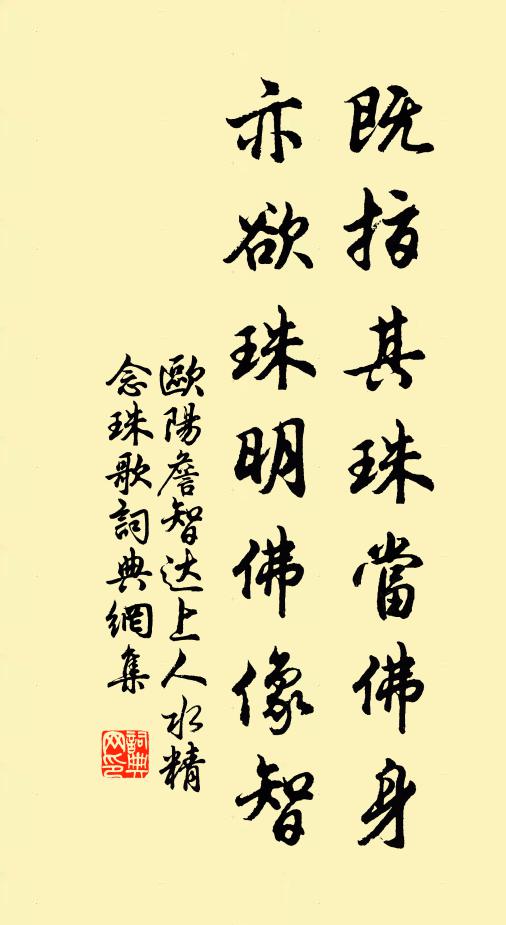 既指其珠當佛身
亦欲珠明佛像智
歐陽詹智达上人水精
念珠歌詞典網集
詞典
网印